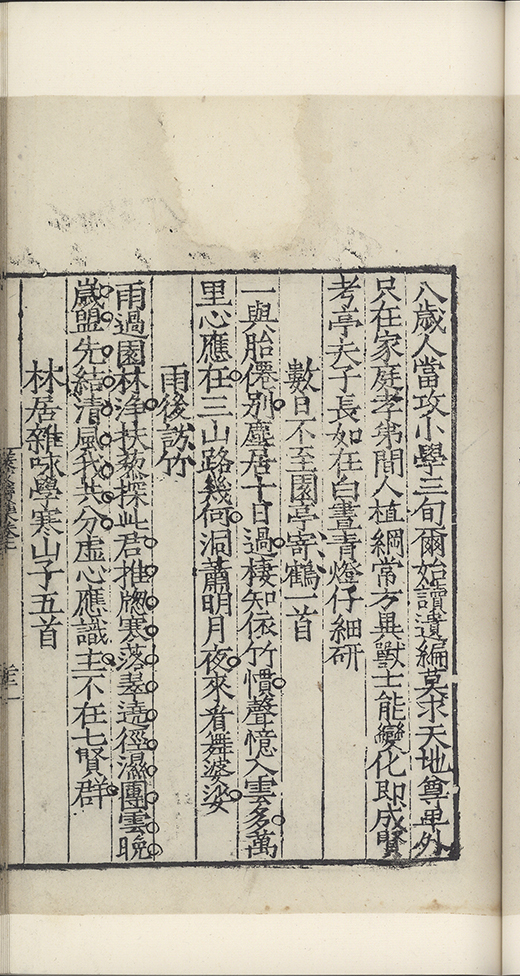 八歲人當攻小學三旬爾始讀遺編莫求天地尊卑外
只在家庭孝弟間人植綱常方異獸士能變化即成賢
考亭夫子長如在白晝青燈仔細研
數日不至園亭寄鶴一首
一與胎僊別塵居十日過棲知依竹慣聲憶入雲多萬
里心應在三山路幾何洞蕭明月夜來看舞婆娑
雨後訪竹
雨過園林淨扶藜探此君推牎寒落翠遶徑濕團雲晚
歲盟先結清風我共分虛心應識主不在七賢群
林居雜咏學寒山子五首